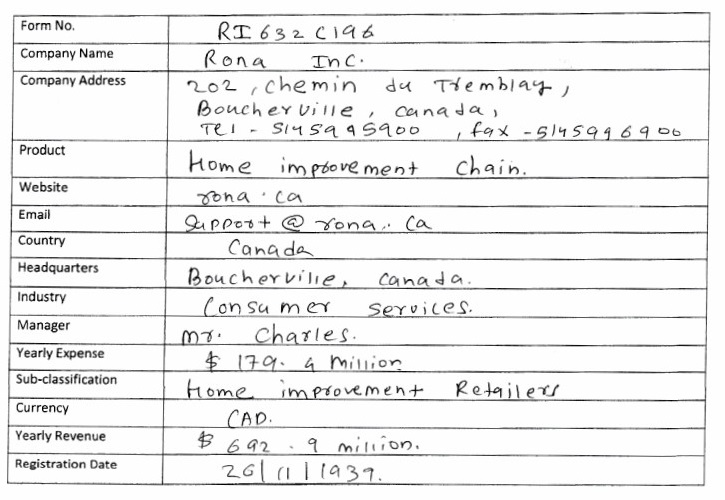 Form No. RI632C196
Company Name Rona Inc.
Company Address 202, chemin du Tremblay,
Boucherville, canada,
Tel - 5145995900, fax - 5145996900
Product Home improvement Chain.
Website rona.ca
Email support@rona.ca
Country Canada
Headquarters Boucherville, canada.
Industry Consumer services.
Manager mr. Charles.
Yearly Expense $ 179.4 million
Sub-classification Home improvement Retailers
Currency CAD.
Yearly Revenue $ 692.9 million.
Registration Date 26/11/1939.